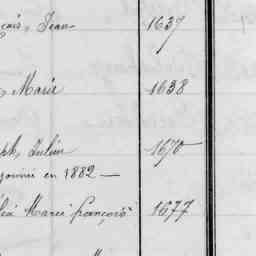 çois, Jean 1637
, Marie 1638
ph, Julien 1670
en 1882 —
Marie François 1677